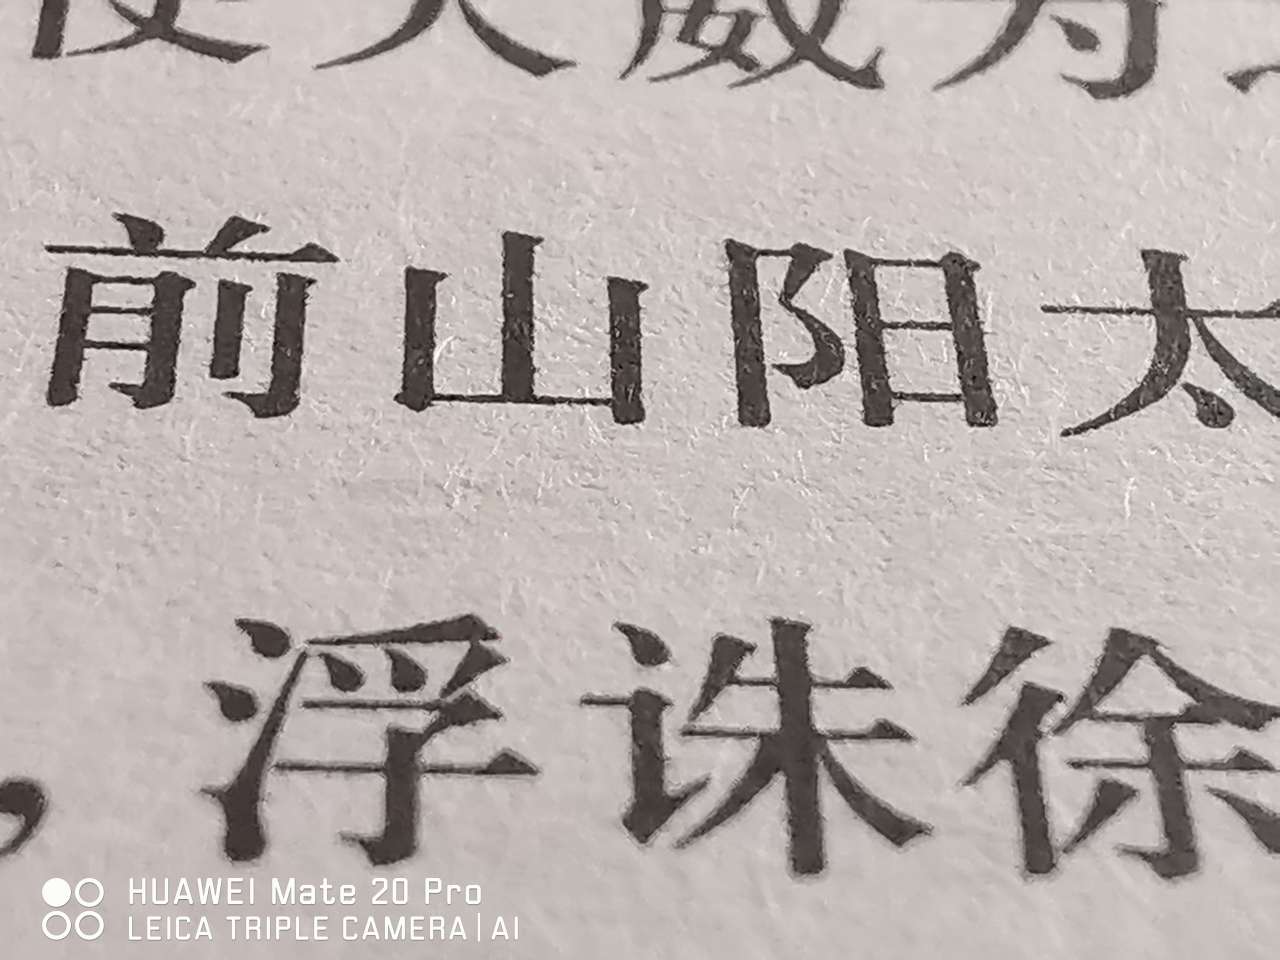 使天威为
前山阳太
，浮诛徐
HUAWEI Mate 20 Pro
LEICA TRIPLE CAMERA | AI